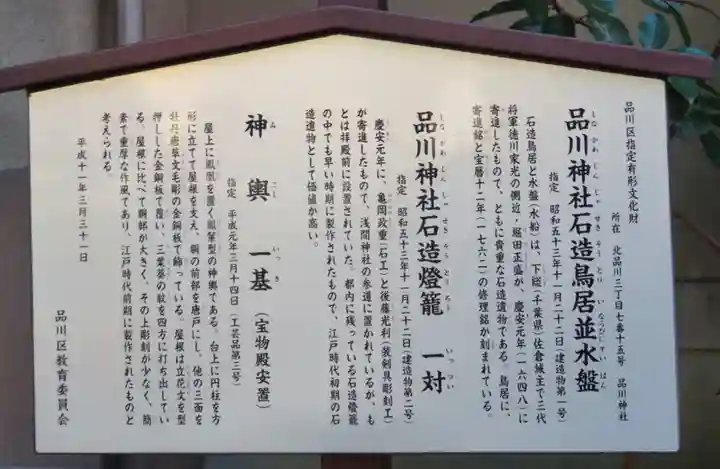 品川区指定有形文化財
所在 北品川三丁目七番十五号 品川神社
しながわじんじゃせきぞうとりいならびにすいばん
品川神社石造鳥居並水盤
指定 昭和五十三年十一月二十二日(建造物第一号)
石造鳥居と水盤(水船)は、下総(千葉県)佐倉城主で三代
将軍徳川家光の側近・堀田正盛が、慶安元年(一六四八)に
寄進したもので、ともに貴重な石造遺物である。鳥居に、
寄進銘と宝暦十二年(一七六二)の修理銘が刻まれている。
しながわじんじゃせきぞうとうろう いっつい
品川神社石造燈籠 一対
指定 昭和五十三年十一月二十二日(建造物第二号)
慶安元年に、亀岡政重(石工)と後藤光利(装剣具彫刻工)
が寄進したもので、浅間神社の参道に置かれているが、も
とは拝殿前に設置されていた。都内に残っている石造燈籠
の中でも早い時期に製作されたもので、江戸時代初期の石
造遺物として価値が高い。
みこし いっき
神輿 一基(宝物殿安置)
指定 平成元年三月十四日(工芸品第三号)
屋上に鳳凰を置く鳳輦型の神輿である。台上に円柱を方
形に立てて屋根を支え、胴の前部を唐戸にし、他の三面を
牡丹唐草文毛彫の金銅板で飾っている。屋根は立花文を型
押しした金銅板で覆い、三葉葵の紋を四方に打ち出してい
る。屋根に比べて胴部が大きく、その上彫刻が少なく、簡
素で重厚な作風であり、江戸時代前期に製作されたものと
考えられる。
平成十一年三月三十一日
品川区教育委員会